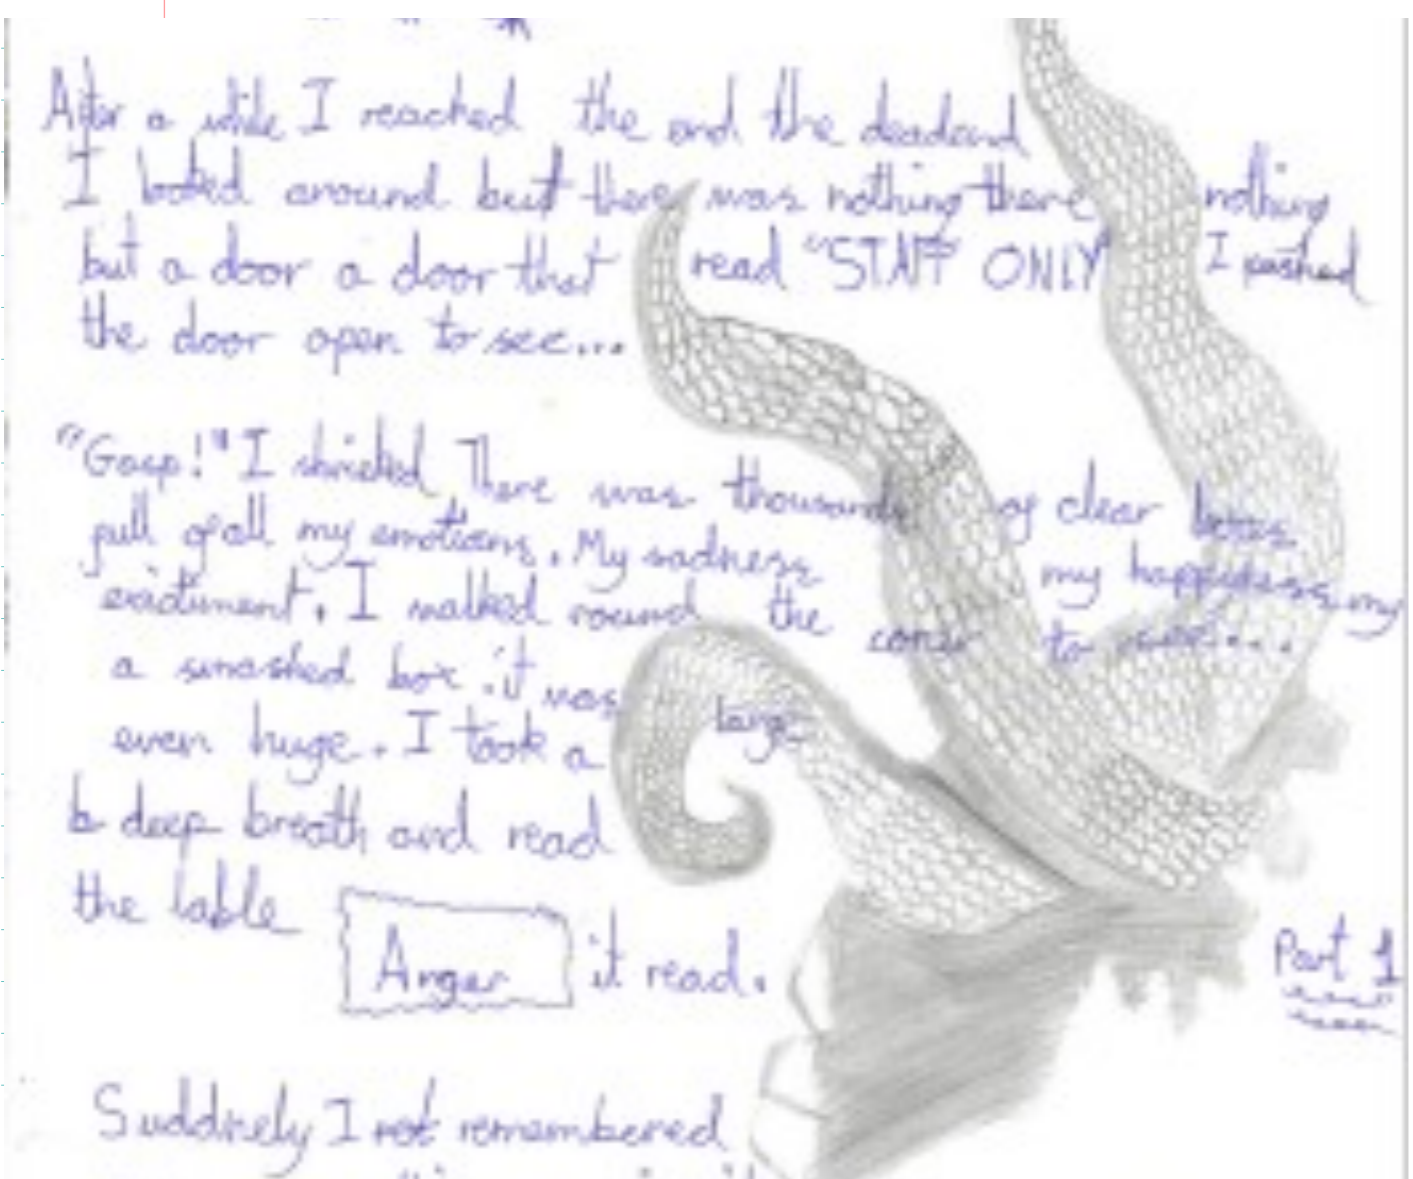 After a while I reached the end the deadend
I looked around but there was nothing there nothing
but a door a door that read "STAFF ONLY" I pushed
the door open to see...
"Gasp!" I shrieked There was thousands of clear boxes
full of all my emotions. My sadness my happieness my
exictument. I walked round the coner to see....
a smashed box. it was large
even huge. I took a
deep breath and read
the lable
Anger it read.
Part 1
Suddnely I remembered